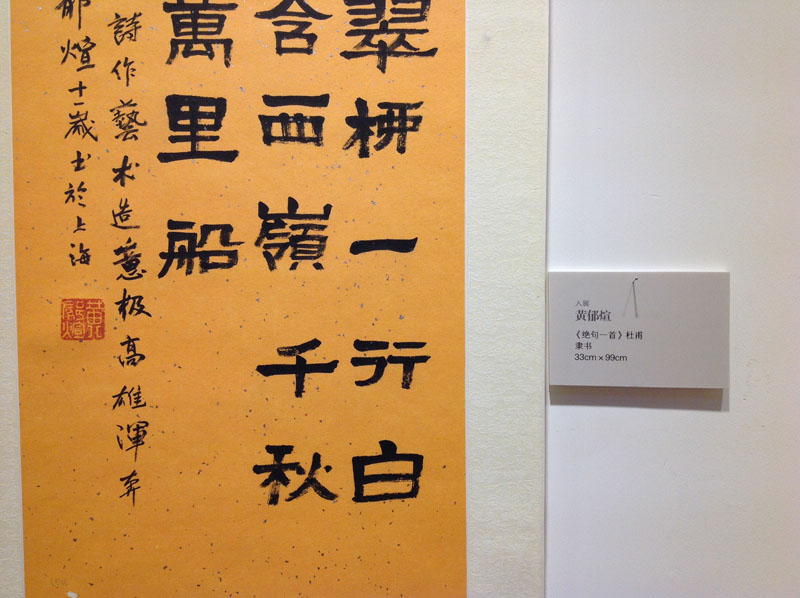 翠柳一行白
含西嶺千秋
萬里船
詩作藝术造意极高雄渾奔
郁煊十一歲书於上海
黄郁煊
入展
黄郁煊
《绝句一首》杜甫
隶书
33cm×99cm